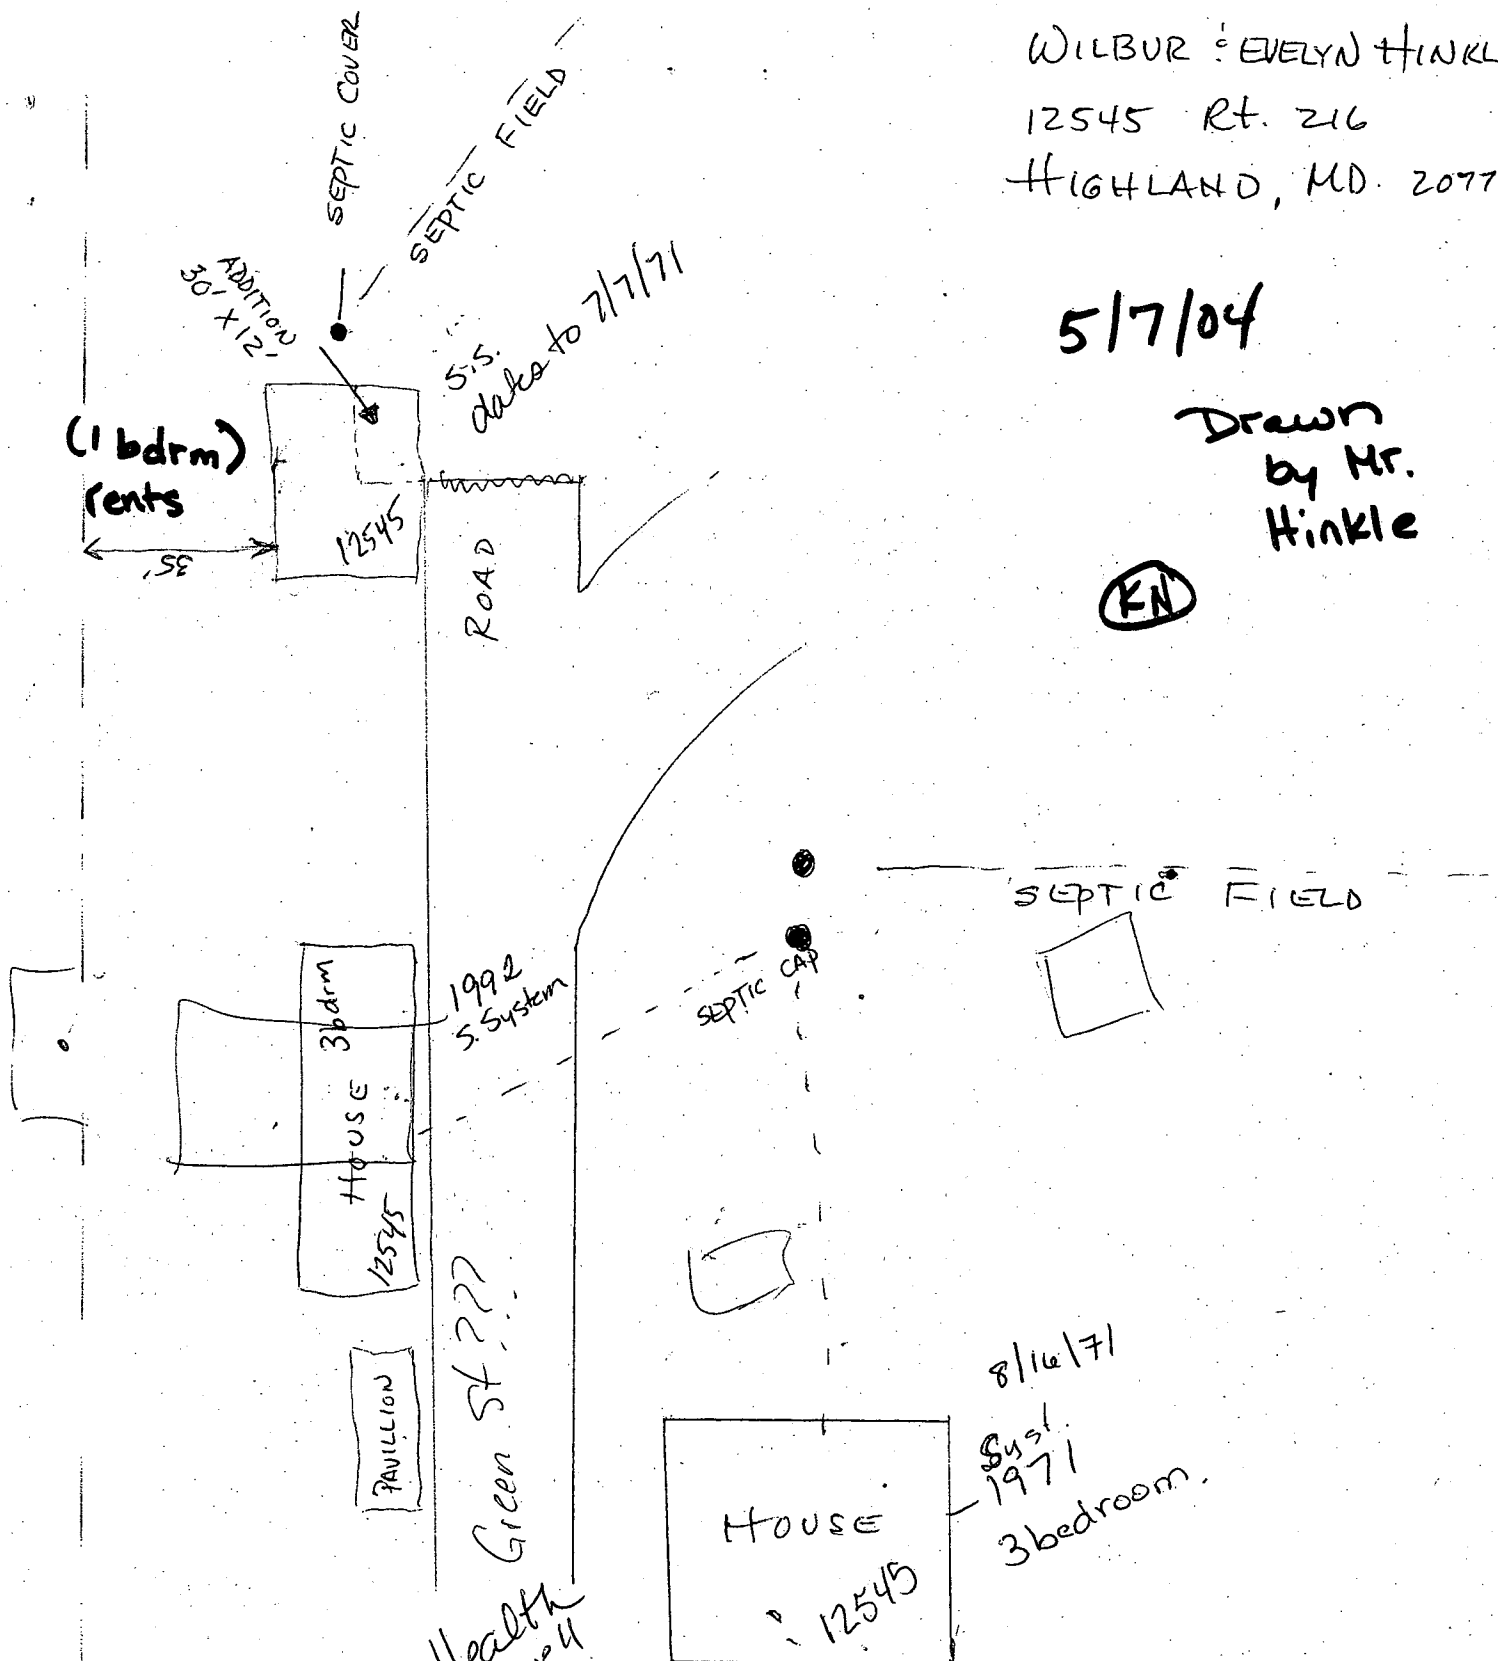 WILBUR & EVELYN HINKL
12545 Rt. 216
HIGHLAND, MD. 2077
5/7/04
Drawn
by Mr.
Hinkle
KN
SEPTIC COVER
SEPTIC FIELD
ADDITION
30' X 12'
S.S.
dates to 7/7/71
(1 bdrm)
rents
35'
12545
ROAD
SEPTIC FIELD
SEPTIC CAP
1992
S. System
3bdrm
HOUSE
12545
PAVILLION
Green St ???
8/16/71
Syst.
1971
3bedroom.
HOUSE
12545
Health